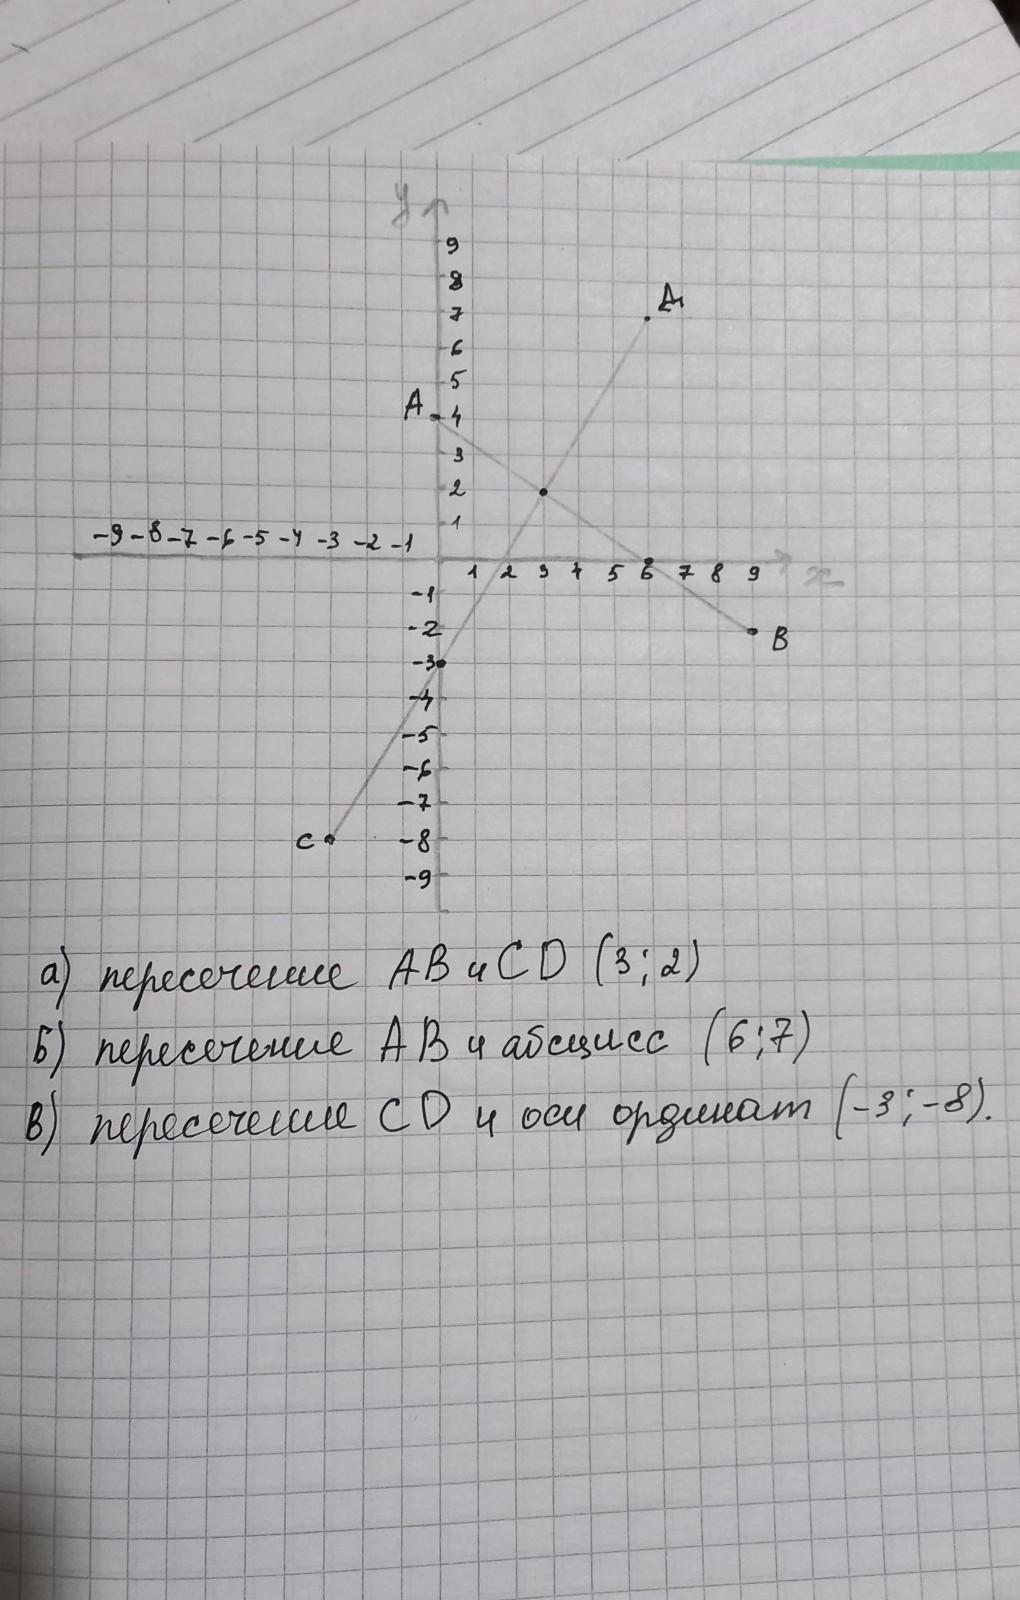 у
9
8
Д
7
6
5
А
4
3
2
1
-9 -8 -7 -6 -5 -4 -3 -2 -1
1 2 3 4 5 6 7 8 9 х
-1
-2
В
-3
-4
-5
-6
-7
С
-8
-9
а) пересечение АВ и CD (3;2)
Б) пересечение АВ и абсцисс (6;7)
В) пересечение CD и оси ординат (-3;-8).